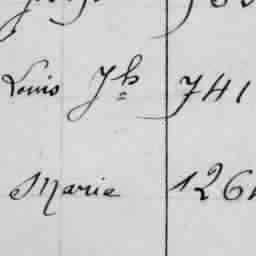 Louis Jh 741
Marie 126